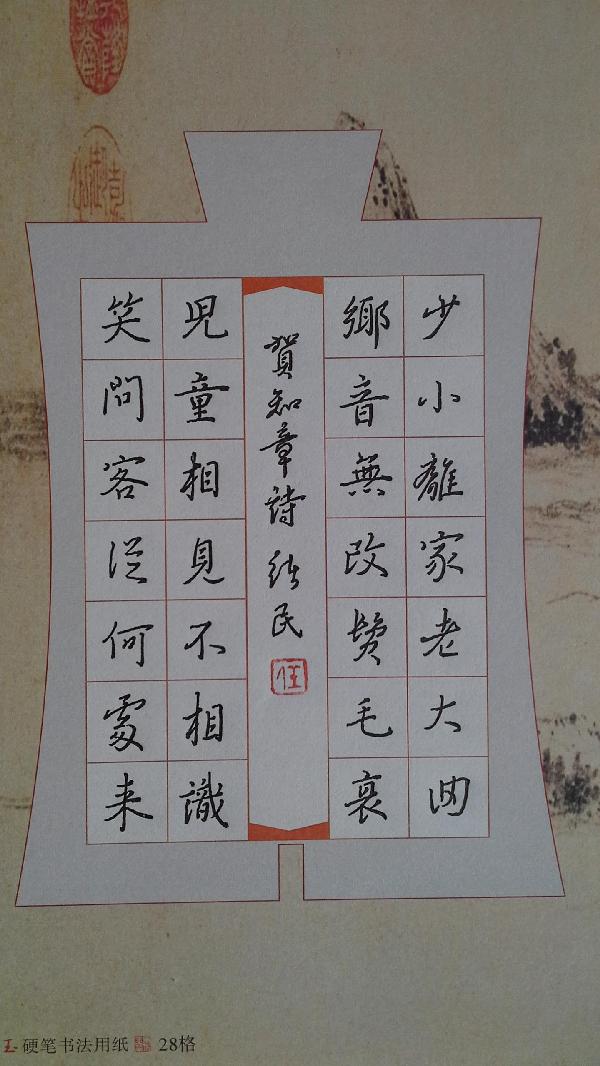 少小離家老大回
鄉音無改鬢毛衰
賀知章詩 德民
任
兒童相見不相識
笑問客從何處来
硬笔书法用纸 28格